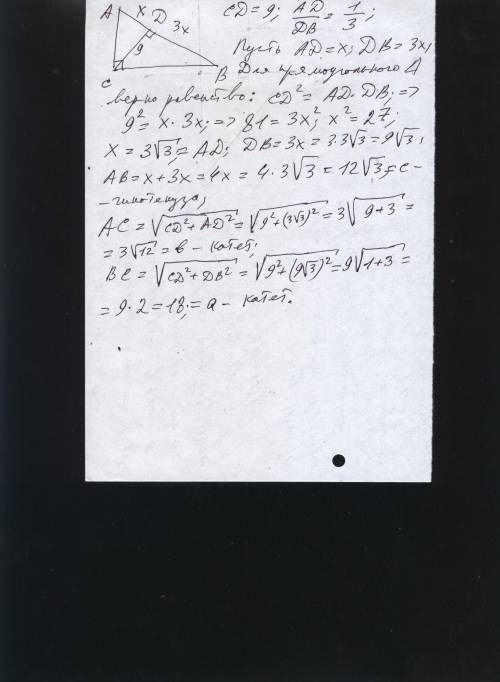 A x D 3x
9
C B
CD = 9; AD/DB = 1/3;
Пусть AD = x; DB = 3x,
Для прямоугольного Δ
верно равенство: CD² = AD·DB; =>
9² = x·3x; => 81 = 3x²; x² = 27;
x = 3√3 = AD; DB = 3x = 3·3√3 = 9√3;
AB = x + 3x = 4x = 4·3√3 = 12√3 = c -
- гипотенуза;
AC = √(CD² + AD²) = √(9² + (3√3)²) = 3√(9+3) =
= 3√12 = в - катет;
BC = √(CD² + DB²) = √(9² + (9√3)²) = 9√(1+3) =
= 9·2 = 18; = a - катет.